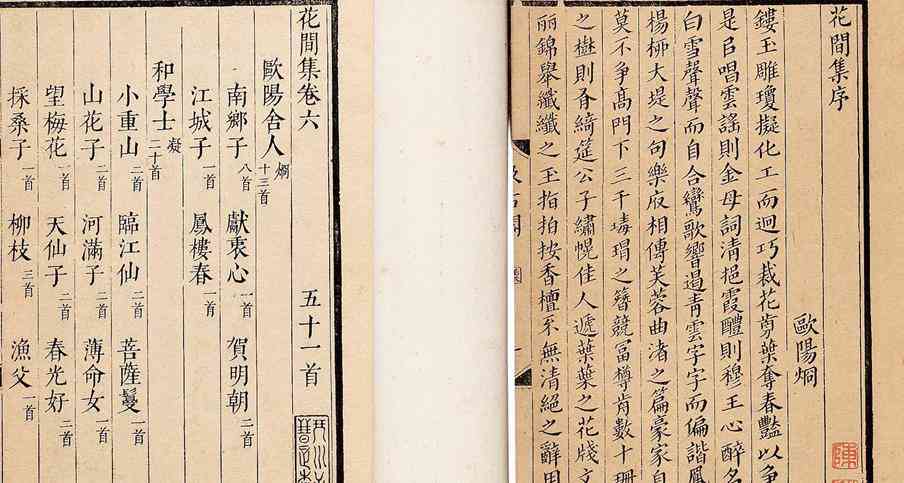 花間集序
歐陽烱
鏤玉雕瓊擬化工而迥巧裁花剪葉奪春豔以爭
是㠯唱雲謠則金母詞清挹霞醴則穆王心醉名
白雪聲聲而自合鸞歌響遏青雲字字而偏諧鳳
楊柳大堤之句樂府相傳芙蓉曲渚之篇豪家自
莫不爭高門下三千瑇瑁之簪競富樽前數十珊
之樹則有綺筵公子繡幌佳人遞葉葉之花牋文
丽錦舉纖纖之玉指拍按香檀不無清絕之辭用
花間集卷六 五十一首
歐陽舍人烱十三首
南鄉子八首 獻衷心一首 賀明朝二首
江城子一首 鳳樓春一首
和學士凝二十首
小重山二首 臨江仙二首 菩薩蠻一首
山花子二首 河滿子二首 薄命女一首
望梅花一首 天仙子二首 春光好二首
採桑子一首 柳枝三首 漁父一首